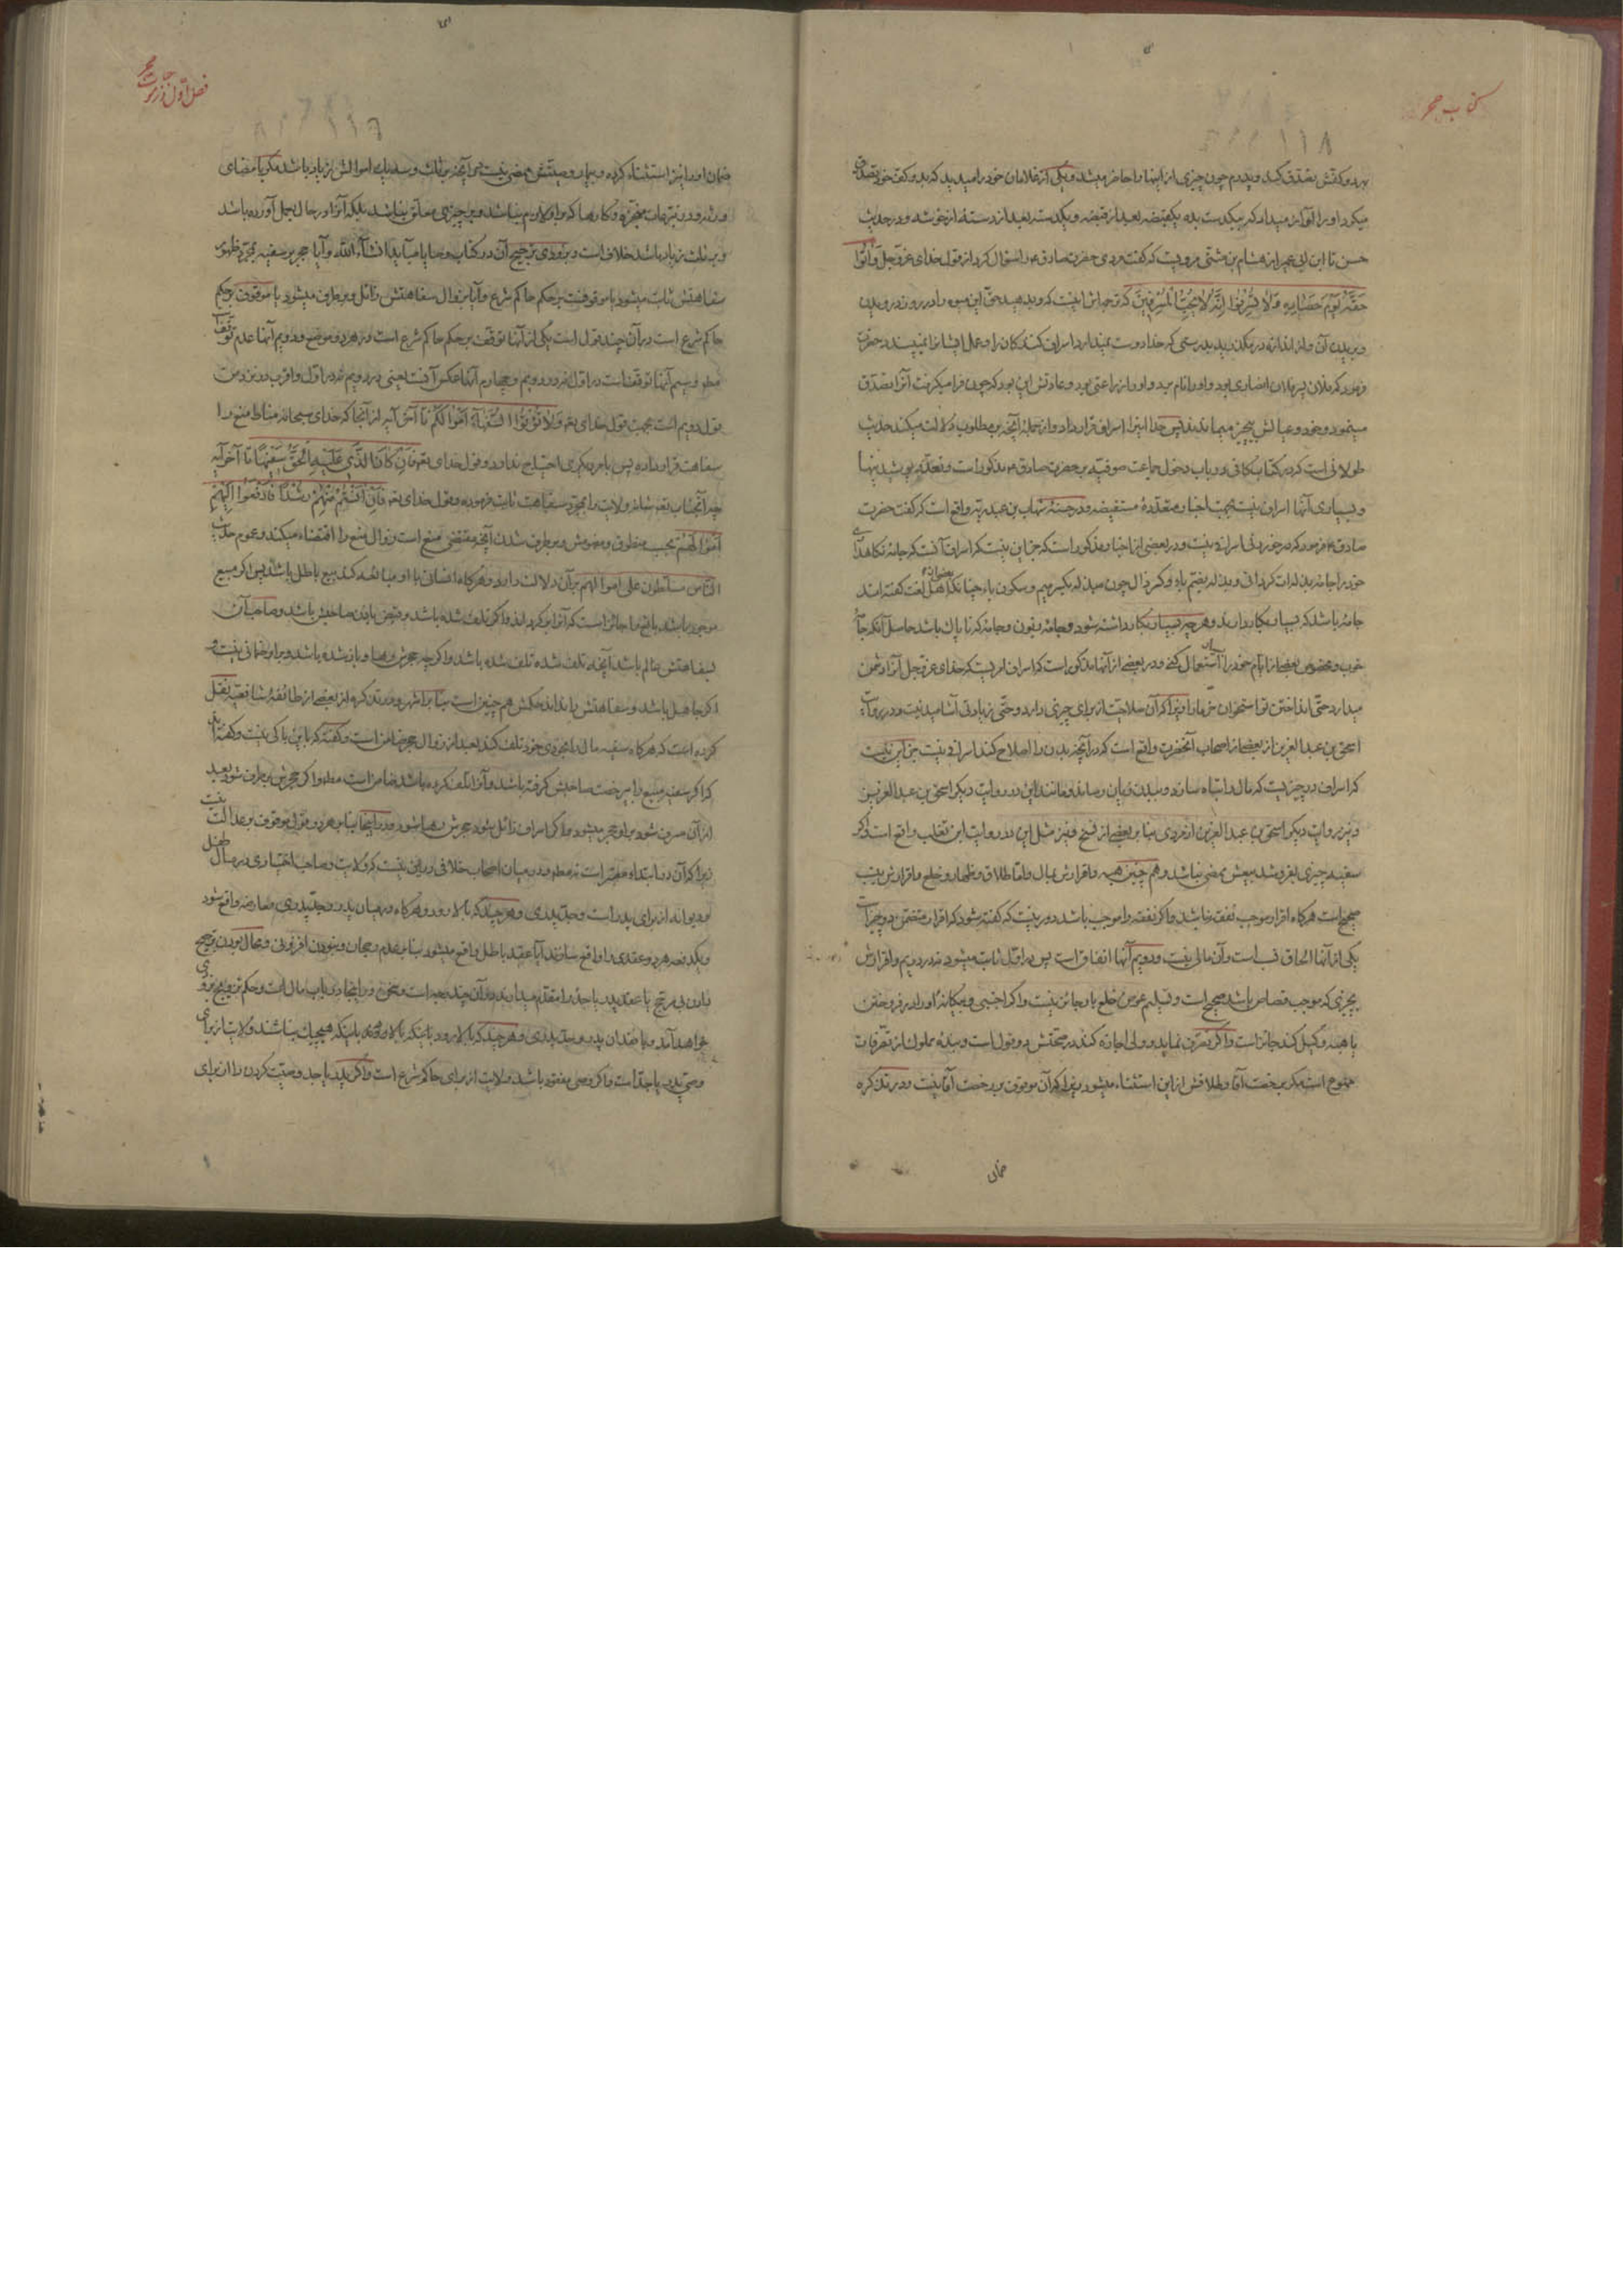 کتاب حجر
۱۱۸
بهر دو کفش تصدق کند و پدرم چون چیزی از اینها را حاضر میشد و یکی از غلامان خود را میدید که بدو کفت خود تصدق
میکرد او را آواز میداد که بیکدست بده یکقبضه بعد از قبضه و یکدسته بعد از دسته از خوشه و در حدیث
حسن تا ابن ابی عمیر از هشام بن مثنی مرویست که کفت مردی حضرت صادق ع را سؤال کرد از قول خدای عز و جل وَآتُوا
حَقَّهُ يَوْمَ حَصَادِهِ وَلَا تُسْرِفُوا إِنَّهُ لَا يُحِبُّ الْمُسْرِفِينَ که ترجمه‌اش اینست که و بدهید حق این میوه را در روز درویدن
و بریدن آن و از اندازه در مگذرید بدرستی که خدا دوست نمیدارد اسراف کنندکان را و عمل ایشان را نمیپسندد حضرت
فرمود که فلان پسر فلان انصاری بود و او را نام برد و او را زراعتی بود و عادتش این بود که چون فرا میکرفت آنرا تصدق
مینمود و خود و عیالش بیچیز میماندند پس خدا اینرا اسراف قرار داد و از جمله آنچه بر مطلوب دلالت میکند حدیث
طولانی است که در کتاب کافی در باب دخول جماعت صوفیه بر حضرت صادق ع مذکور است و تعدد پوشیدنیها
و بسیاری آنها اسراف نیست بجهت اخبار متعدده مستفیضه و در حسنه شهاب بن عبد ربه واقع است که کفت حضرت
صادق ع فرمود که در خوردنی اسراف نیست و در بعضی از اخبار مذکور است که جز این نیست که اسراف آنست که جامه نکاهداری
خود را جامه بذلت کردانی و بذله بفتح باء و کسر ذال چون مبذله بکسر میم و سکون باء چنانکه بعضی از اهل لغت کفته‌اند
جامه باشد که بسیار بکار دارند و هر چه بسیار بکار داشته شود و جامه زبون و جامه که ناپاک باشد حاصل آنکه جامه
خوب و مخصوص بعضی از ایام خود را بسیار استعمال کنی و در بعضی از آنها مذکور است که اسراف امریست که خدای عز و جل آنرا دشمن
میدارد حتی انداختن تو استخوان خرما را زیرا که آن صلاحیت از برای چیزی دارد و حتی زیادتی آشامیدنیت و در روایت
اسحق بن عبد العزیز از بعضی از اصحاب آنحضرت واقع است که در آنچه بدن را اصلاح کند اسراف نیست جز این نیست
که اسراف در چیزیست که مال را تباه سازد و ببدن زیان رساند و مانند این در روایت دیکر اسحق بن عبد العزیز
و نیز روایت دیکر اسحق بن عبد العزیز از مردی بنا بر بعضی از نسخ و نیز مثل این در روایت ابن تغلب واقع است و اکر
سفیه چیزی بفروشد بیعش ممضی نباشد و هم چنین هبه و اقرارش بمال و اما طلاق و ظهار و خلع و اقرارش بنسب
صحیح است هر کاه اقرار موجب نفقه نباشد و اکر نفقه را موجب باشد دور نیست که کفته شود که اقرار متضمن دو چیز است
یکی از آنها الحاق نسب است و آن مالی نیست و دویم آنها انفاق است پس در اول ثابت میشود نه در دویم و اقرارش
بچیزی که موجب قصاص باشد صحیح است و تسلیم عوض خلع باو جائز نیست و اکر اجنبی و بیکانه او را در فروختن
یا هبه وکیل کند جائز است و اکر تصرف نماید و ولی اجازه کند در صحتش دو قول است و بنده مملوک از تصرفات
ممنوع است مکر برخصت آقا و طلاقش از این استثناء میشود زیرا که آن موقوف بر رخصت آقا نیست و در تذکره
ضمان
فصل اول در ثبوت حجر
ضمان او را نیز استثناء کرده و بیمار وصیتش ممضی نیست در آنچه بر ثلث و سه یک اموالش زیاد باشد مکر با مضای
ورثه و در تبرعات منجزه و کارها که بر او لازم نباشد و بر چیزی معلق نباشد بلکه آنرا در حال بعمل آورده باشد
و بر ثلث زیاد باشد خلاف است و بزودی ترجیح آن در کتاب وصایا میآید انشاء الله و آیا حجر بر سفیه بمجرد ظهور
سفاهتش ثابت میشود یا موقوفست بر حکم حاکم شرع و آیا بزوال سفاهتش زائل و برطرف میشود یا موقوف بر حکم
حاکم شرع است در آن چند قول است یکی از آنها توقف بر حکم حاکم شرع است در هر دو موضع و دویم آنها عدم توقف است
مطلقا و سیم آنها توقف است در اول نه در دویم و چهارم آنها عکس آنست یعنی در دویم نه در اول و اقرب در نزد من
قول دویم است بجهت قول خدای تعالی وَلَا تُؤْتُوا السُّفَهَاءَ أَمْوَالَكُمْ تا آخر آیه از آنجا که خدای سبحانه مناط منع را
سفاهت قرار داده پس بامر دیکری احتیاج ندارد و قول خدای تعالی فَإِنْ كَانَ الَّذِي عَلَيْهِ الْحَقُّ سَفِيهًا تا آخر آیه
چه آنجناب تعالی شانه ولایت را بمجرد سفاهت ثابت فرموده و قول خدای تعالی فَإِنْ آنَسْتُمْ مِنْهُمْ رُشْدًا فَادْفَعُوا إِلَيْهِمْ
أَمْوَالَهُمْ بحسب منطوق و مفهومش و برطرف شدن آنچه مقتضی منع است زوال منع را اقتضاء میکند و عموم حدیث
الناس مسلطون علی اموالهم بر آن دلالت دارد و هرکاه انسانی با او مبایعه کند بیع باطل باشد پس اکر مبیع
موجود باشد بایع را جائز است که آنرا برکرداند و اکر تلف شده باشد و قبض باذن صاحبش باشد و صاحب آن
بسفاهتش عالم باشد آنچه تلف شده تلف شده باشد و اکر چه حجرش رها و باز شده باشد و بر او ضمانی نیست و
اکر جاهل باشد و سفاهتش را نداند حکمش هم چنین است بنا بر اشهر و در تذکره از بعضی از طائفه شافعیه نقل
کرده است که هر کاه سفیه مال را بخودی خود تلف کند بعد از زوال حجر ضامن است و کفته که باین باکی نیست و کفته‌اند
که اکر سفیه مبیع را بی رخصت صاحبش کرفته باشد و آنرا تلف کرده باشد ضامن است مطلقا و اکر حجرش برطرف شود بعد
از آن مسرف شود بر او حجر میشود و اکر اسراف زائل شود حجرش رها شود و در اینجا بنا بر هر دو قول موقوف بر عدالت نیست
زیرا که آن در ابتداء معتبر است نه مطلقا و در میان اصحاب خلافی در این نیست که ولایت و صاحب اختیاری در مال طفل
و دیوانه از برای پدر است و جد پدری و هر چند که بالا رود و هر کاه در میان پدر و جد پدری معارضه واقع شود
و یکدفعه هر دو عقدی را واقع سازند آیا عقد باطل واقع میشود بنا بر عدم رجحان و نبودن افزونی و محال بودن ترجیح
دادن بی مرجح یا عقد پدر یا جد را مقدم میدارند در آن چند وجه است و سخن در اینجا در باب مال است و حکم تزویج بزودی
خواهد آمد و با فقدان پدر و جد پدری و هر چند که بالا رود باینکه هیچیک نباشند ولایت از برای
وصی پدر یا جد است و اکر وصی مفقود باشد ولایت از برای حاکم شرع است و اکر پدر با جد وصیت کردن را از برای